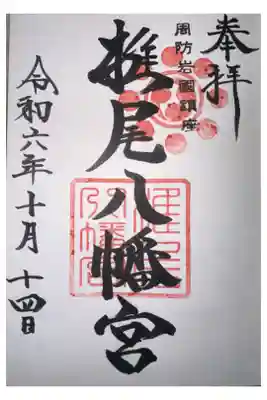 奉拝
周防岩國鎮座
椎尾八幡宮
令和六年十月十四日
椎尾八幡宮